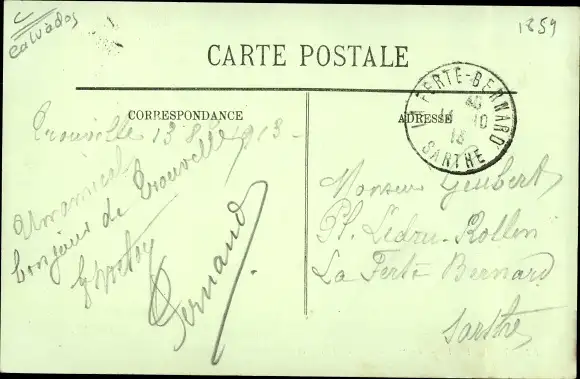 Calvados
1859
CARTE POSTALE
CORRESPONDANCE
ADRESSE
LA FERTÉ-BERNARD
SARTHE
Trouville 13 8 1913
Un amical
bonjour de Trouville
Fernand
Monsieur
Pl. Ledru-Rollin
La Ferté Bernard
Sarthe